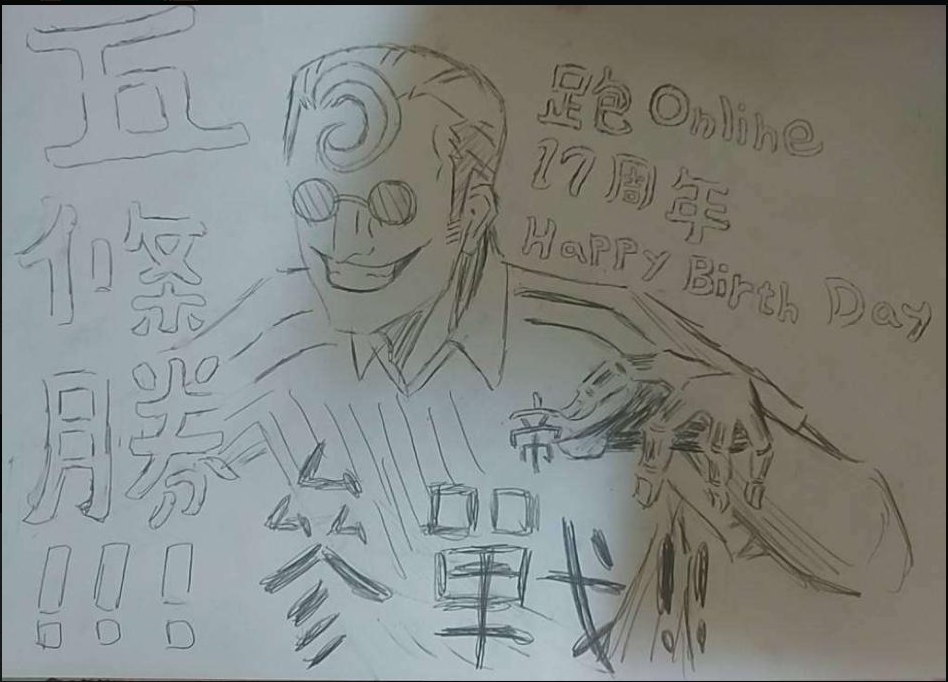 五條勝!!!
跑Online
17周年
Happy Birth Day
帝
參戰!!